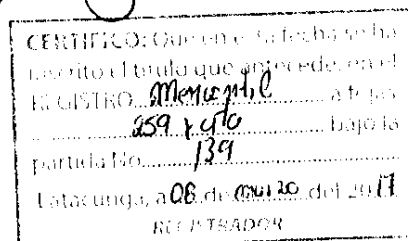 CERTIFICO: Que en esta fecha se ha
inscrito el título que antecede, en el
REGISTRO Mercantil a fojas
259 y vta bajo la
partida No. 139
Latacunga, a 08 de marzo del 2017
REGISTRADOR